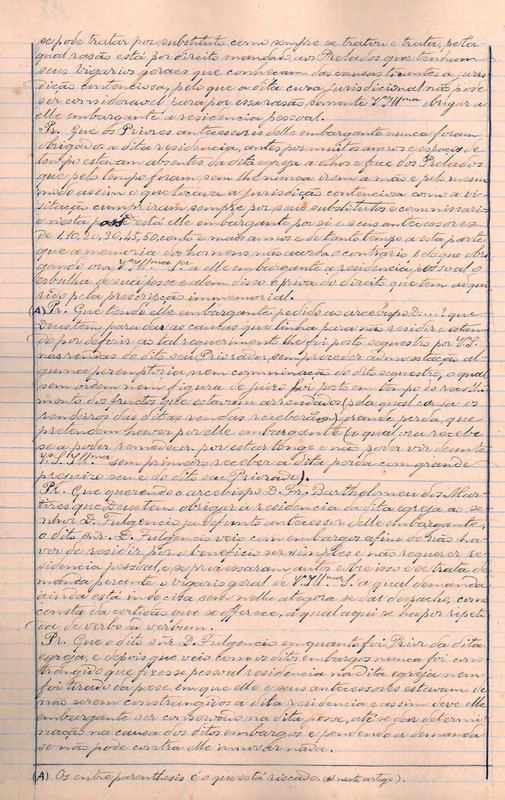 se pode tratar por substituto como sempre se tratou e trata, pela
qual rasão está por direito mandado aos Prelados que tenham
seus vigarios geraes que conheçam das causas tocantes a juris
dição contenciosa, pelo que a dita cura jurisdicional não pode
ser consideravel para por essa rasão sómente V. Illma obrigar a
elle embargante a residencia pessoal.
Pr. Que os Priores antecessores delle embargante nunca foram
obrigados a dita residencia, antes por muitos annos e espaços de
tempo estavam absentes da dita egreja a olhos e face dos Prelados
que pelo tempo foram, sem lhe nunca irem a mão e pelo mesmo
modo assim o que tocava a jurisdição contenciosa como a vi
sitação cumpriram sempre por seus substitutos e commissarios
e nesta posse está elle embargante por si e seus antecessores
de 1, 10, 20, 30, 45, 50, cento e mais annos e de tanto tempo a esta parte
que a memoria dos homens não acorda o contrario pelo que obri
gando ora V. Illma S. a elle embargante a residencia pessoal o
esbulha de sua posse e alem disso o priva do direito que tem adqui
rido pela prescripção immemorial.
(A) Pr. Que tendo elle embargante pedido ao arcebispo D....! que
Deus tem para dar as causas que tinha para não residir e estan
do por deferir ao tal requerimento lhe foi posto sequestro por V. S.
nas rendas do dito seu Priorado, sem preceder admoestação al
guma peremptoria nem comminação do dito sequestro, o qual
sem ordem nem figura de juizo foi posto em tempo do recolhi
mento dos fructos que estavam arrendados (pela qual causa os
rendeiros das ditas rendas receberão grande perda, que
pretendem haver por elle embargante (a qual ora recebe
se a poder remedear, por estar longe e não poder vir de ante
V. S. Illma sem primeiro receber a dita perda com grande
prejuizo seu e do dito seu Priorado).
Pr. Que querendo o arcebispo D. Fr. Bartholomeu dos Mar
tires que Deus tem obrigar a residencia da dita egreja ao se
nhor D. Fulgencio ja defunto antecessor delle embargante,
o dito snr. D. Fulgencio veio com embargos a fim de não ha
ver de residir por o beneficio ser simples e não requerer re
sidencia pessoal, e se processaram autos sobre isso e se trata de
manda perante o vigario geral de V. Illma S. a qual demanda
ainda está indecisa sem nella ategora se dar despacho, como
consta da certidão que se offerece, a qual aqui se ha por repeti
da de verbo ad verbum.
Pr. Que o dito snr D. Fulgencio emquanto foi Prior da dita
egreja, e depois que veio com os ditos embargos nunca foi cons
trangido que fizesse pessoal residencia na dita egreja nem
foi tirado da posse em que elle e seus antecessores estavam de
não serem constrangidos a dita residencia e assim deve elle
embargante ser conservado na dita posse, até se dar determi
nação na causa dos ditos embargos e pendendo a demanda
se não pode contra elle innovar nada.
(A) Os entre parenthesis é o que está riscado. (só neste artigo).